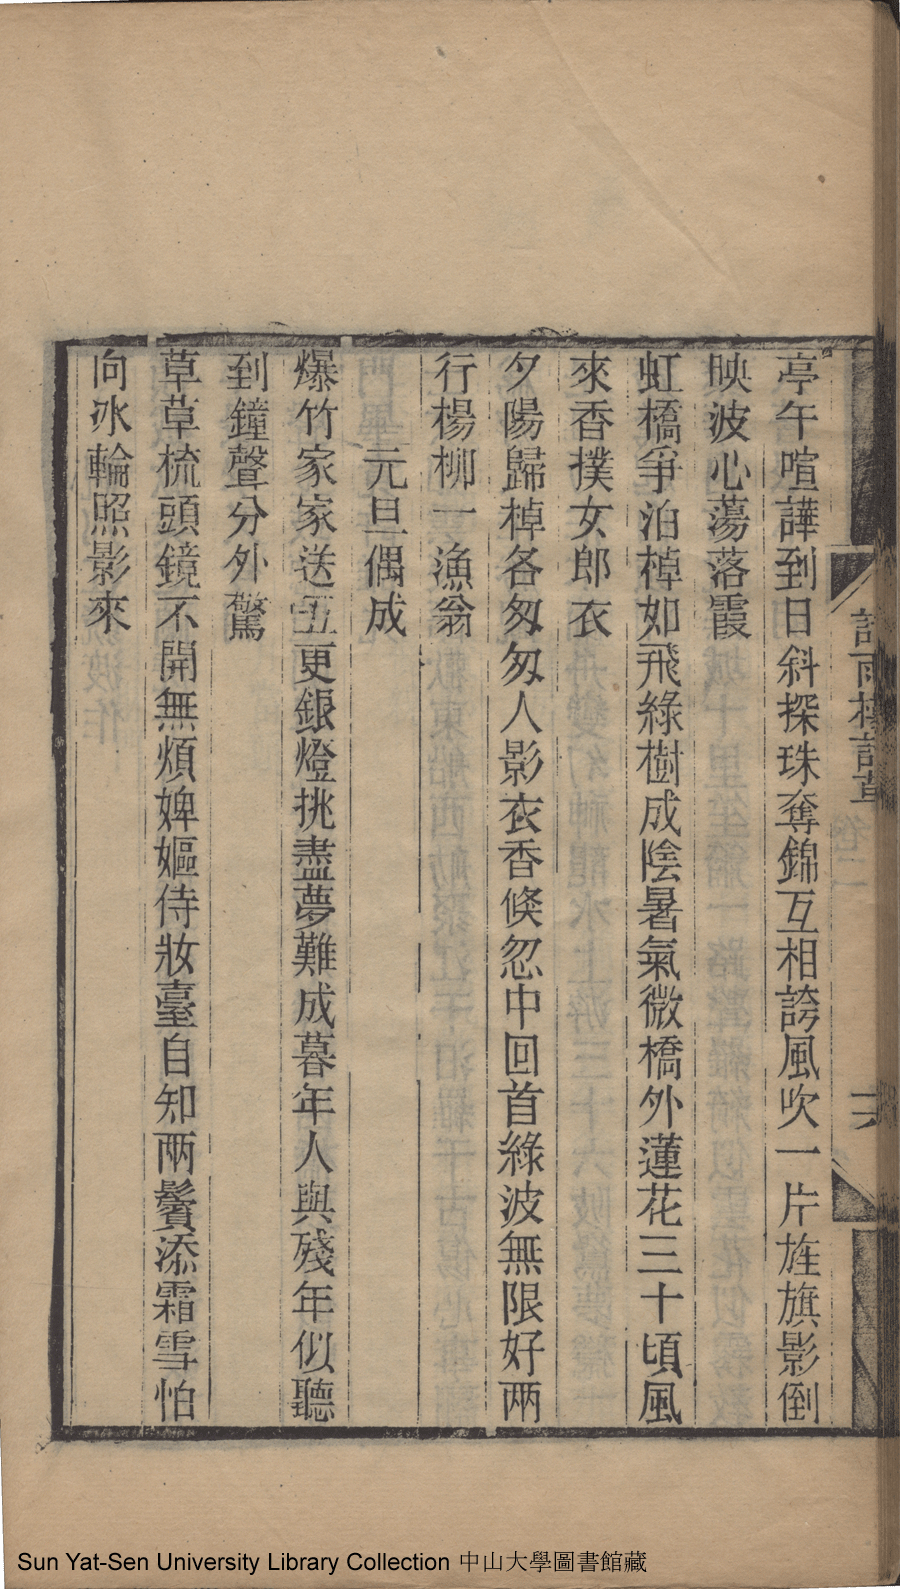 亭午喧譁到日斜探珠奪錦互相誇風吹一片旌旗影倒
映波心蕩落霞
虹橋爭泊棹如飛綠樹成陰暑氣微橋外蓮花三十頃風
來香撲女郎衣
夕陽歸棹各匆匆人影衣香倏忽中回首綠波無限好兩
行楊柳一漁翁
元旦偶成
爆竹家家送五更銀燈挑盡夢難成暮年人與殘年似聽
到鐘聲分外驚
草草梳頭鏡不開無煩婢嫗侍妝臺自知兩鬢添霜雪怕
向冰輪照影來
卷二
Sun Yat-Sen University Library Collection 中山大學圖書館藏